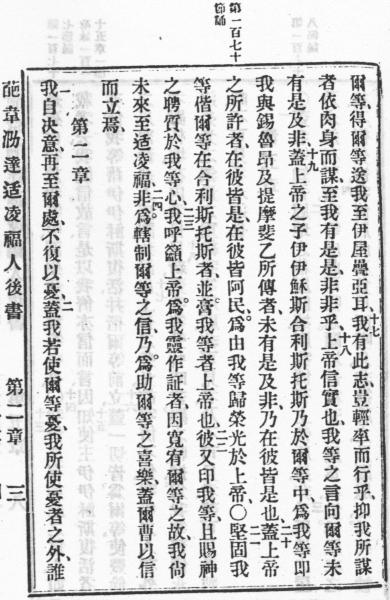 第一百七十
節誦
爾等、得爾等送我至伊屋疊亞耳、十七我有此志、豈輕率而行乎、抑我所謀
者、依肉身而謀、至我有是是非非乎、十八上帝信實也、我等之言向爾等、未
有是及非、十九蓋上帝之子伊伊穌斯合利斯托斯、乃於爾等中、爲我等、卽
我與錫魯昂及提摩斐乙所傳者、未有是及非、乃在彼皆是也、二十蓋上帝
之所許者、在彼皆是、在彼皆阿民、爲由我等歸榮光於上帝○二一堅固我
等偕爾等在合利斯托斯者、並膏我等者、上帝也、二二彼又印我等、且賜神
之聘質於我等心、二三我呼籲上帝、爲我靈作証者、因寬宥爾等之故、我尙
未來至适凌福、二四非爲轄制爾等之信、乃爲助爾等之喜樂、蓋爾曹以信
而立焉、
第二章
一我自決意、再至爾處、不復以憂、二蓋我若使爾等憂、我所使憂者之外、誰
葩韋泐達适凌福人後書
第二章
三